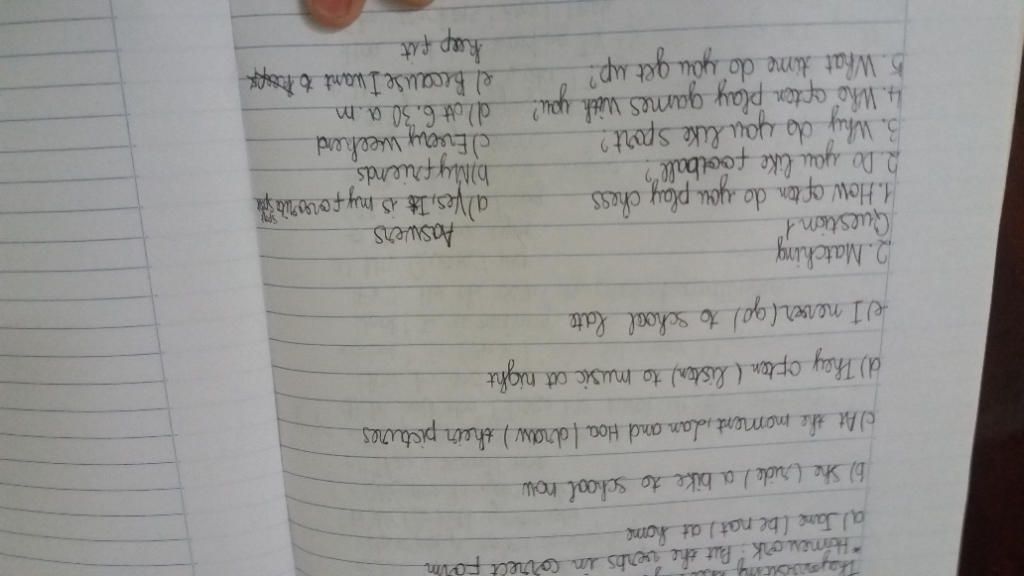 * Homework: Put the verbs in correct form
a) Jane (be not) at home
b) She (ride) a bike to school now
c) At the moment, Lan and Hoa (draw) their pictures
d) They often (listen) to music at night
e) I never (go) to school late
2. Matching
Question 1 Answers
1. How often do you play chess a) Yes. It is my favorite
2. Do you like football? b) My friends
3. Why do you like sport? c) Every weekend
4. Who often play games with you? d) At 6.30 a m
5. What time do you get up? e) Because I want to
keep fit